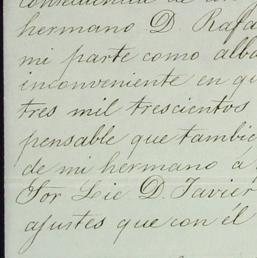 hermano D. Rafa
mi parte como alba
inconveniente en qu
tres mil trescientos
pensable que tambie
de mi hermano a
Sor Lic D. Javier
ajustes que con él